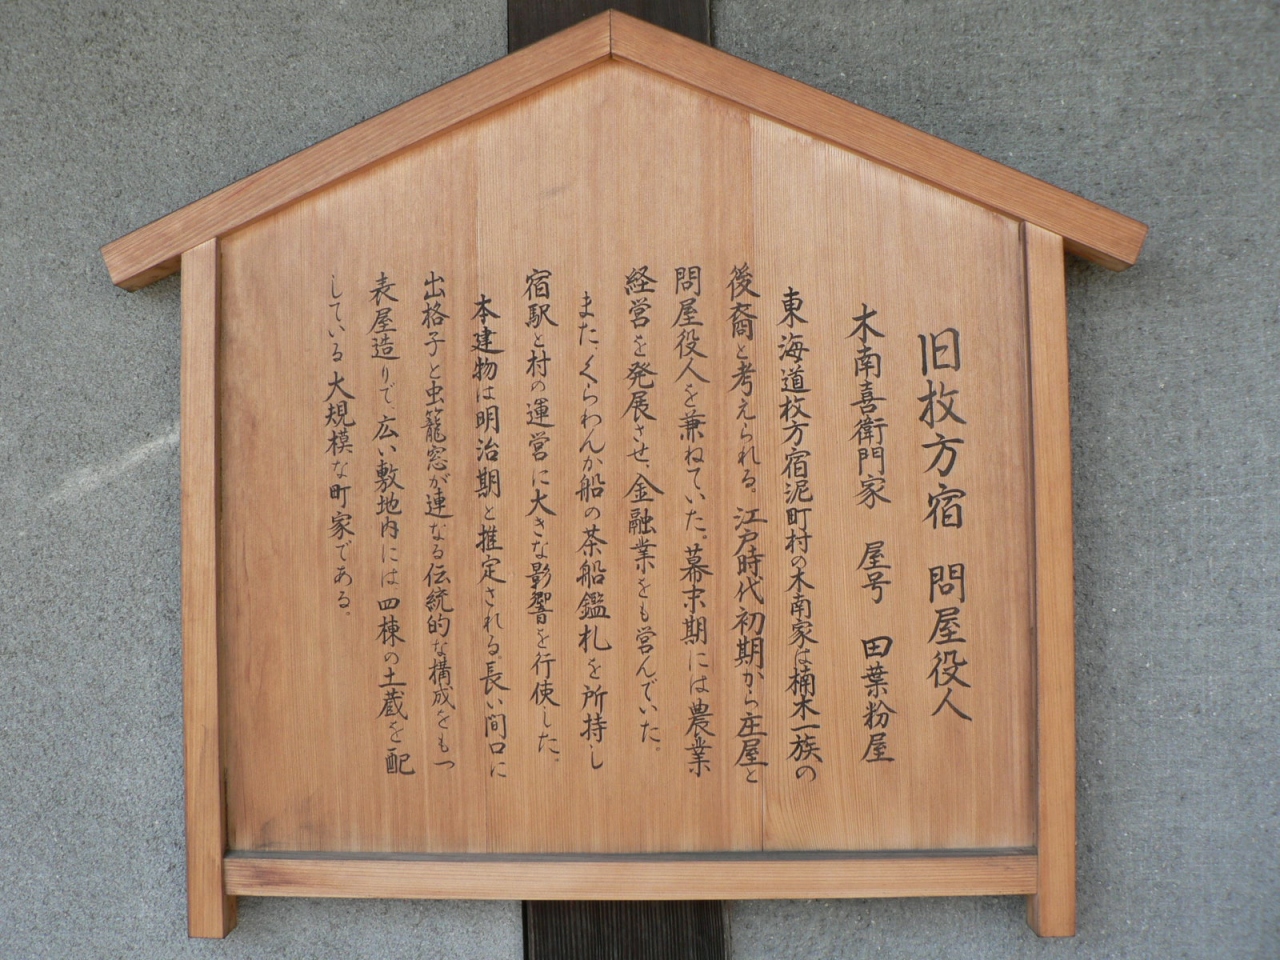 旧枚方宿 問屋役人
木南喜衛門家 屋号 田葉粉屋
東海道枚方宿泥町村の木南家は楠木一族の
後裔と考えられる。江戸時代初期から庄屋と
問屋役人を兼ねていた。幕末期には農業
経営を発展させ、金融業をも営んでいた。
また、くらわんか船の茶船鑑札を所持し
宿駅と村の運営に大きな影響を行使した。
本建物は明治期と推定される。長い間口に
出格子と虫籠窓が連なる伝統的な構成をもつ
表屋造りで広い敷地内には四棟の土蔵を配
している大規模な町家である。